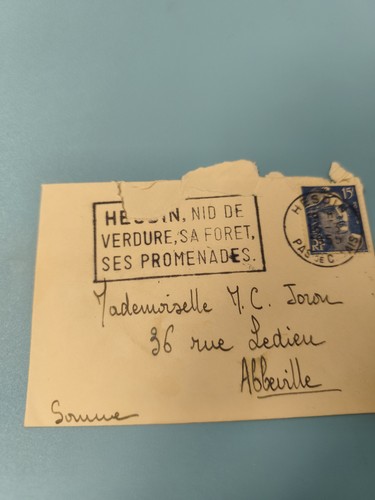 HESDIN, NID DE
VERDURE, SA FORET,
SES PROMENADES.
15F
RF
HESDIN
PAS-DE-CALAIS
Mademoiselle M. C. Joron
36 rue Ledieu
Abbeville
Somme